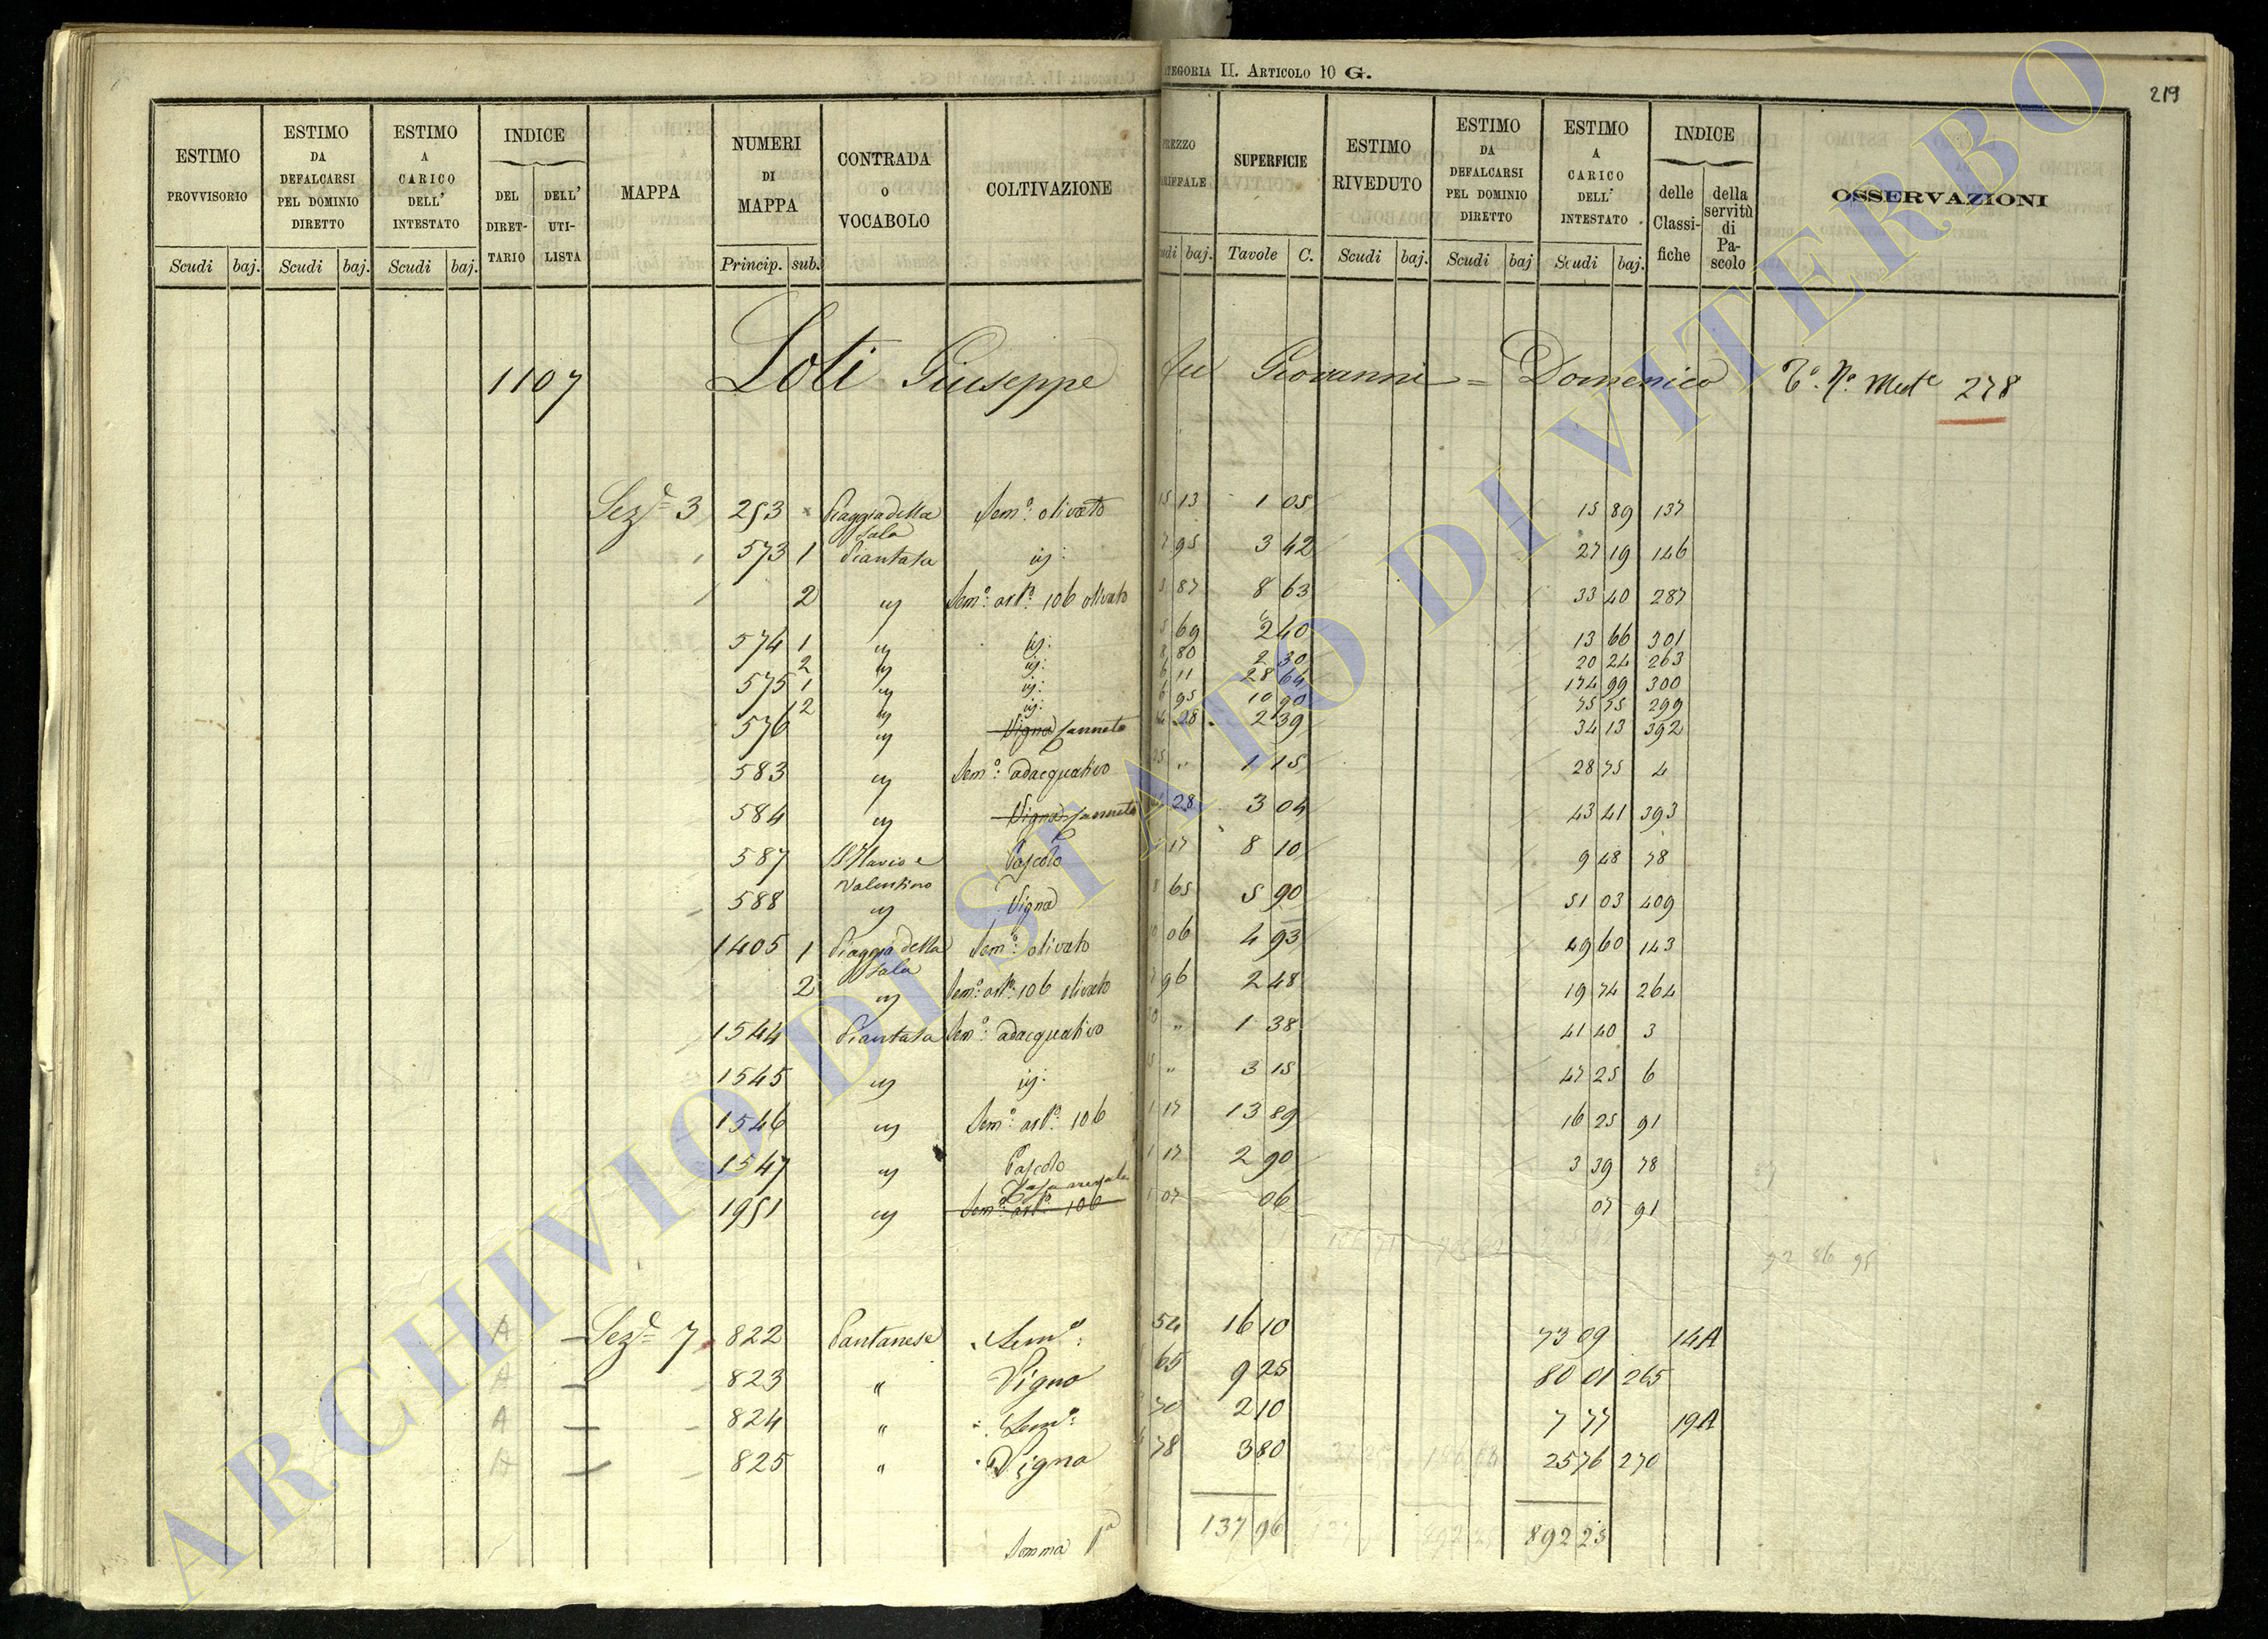 CATEGORIA II. ARTICOLO 10 G.
219
ESTIMO PROVVISORIO | ESTIMO DA DEFALCARSI PEL DOMINIO DIRETTO | ESTIMO A CARICO DELL' INTESTATO | INDICE DEL DIRETTARIO | DELL' UTILISTA | MAPPA | NUMERI DI MAPPA | CONTRADA O VOCABOLO | COLTIVAZIONE | PREZZO TARIFFALE | SUPERFICIE | ESTIMO RIVEDUTO | ESTIMO DA DEFALCARSI PEL DOMINIO DIRETTO | ESTIMO A CARICO DELL' INTESTATO | INDICE delle Classifiche | della servitù di Pascolo | OSSERVAZIONI
Scudi baj. Scudi baj. Scudi baj. Princip. sub. Scudi baj. Tavole C. Scudi baj. Scudi baj Scudi baj.
1107 Loti Giuseppe fu Giovanni = Domenico 278
Sez.e 3 253 Piaggia della Sala Sem.o olivato 15 13 1 05 15 89 137
573 1 Piantata id: 7 95 3 42 27 19 146
2 id Sem.o art.o 106 olivato 3 87 8 63 33 40 287
574 1 id id: 5 69 2 40 13 66 301
2 id id: 8 80 2 30 20 24 263
575 1 id id: 6 11 28 64 174 99 300
2 id id: 6 95 10 90 75 75 299
576 id Vigna Canneto 14 28 2 39 34 13 392
583 id Sem.o adacquativo 25 " 1 15 28 75 4
584 id Vigna Canneto 14 28 3 04 43 41 393
587 S Flavio e Valentino Pascolo 1 17 8 10 9 48 78
588 id Vigna 8 65 5 90 51 03 409
1405 1 Piaggia della Sala Sem.o olivato 10 06 4 93 49 60 143
2 id Sem.o art.o 106 olivato 7 96 2 48 19 74 264
1544 Piantata Sem.o adacquativo 30 " 1 38 41 40 3
1545 id id: 15 " 3 15 47 25 6
1546 id Sem.o art.o 106 1 17 13 89 16 25 91
1547 id Pascolo 1 17 2 90 3 39 78
1951 id Sem.o art.o 106 Casa rurale 1 07 06 07 91
A Sez.e 7 822 Pantanese Sem.o 54 16 10 73 09 14A
A 823 " Vigna 65 9 25 80 01 265
A 824 " Sem.o 70 2 10 7 77 19A
A 825 " Vigna 78 3 80 25 76 270
Somma 1a 137 96 892 25
ARCHIVIO DI STATO DI VITERBO